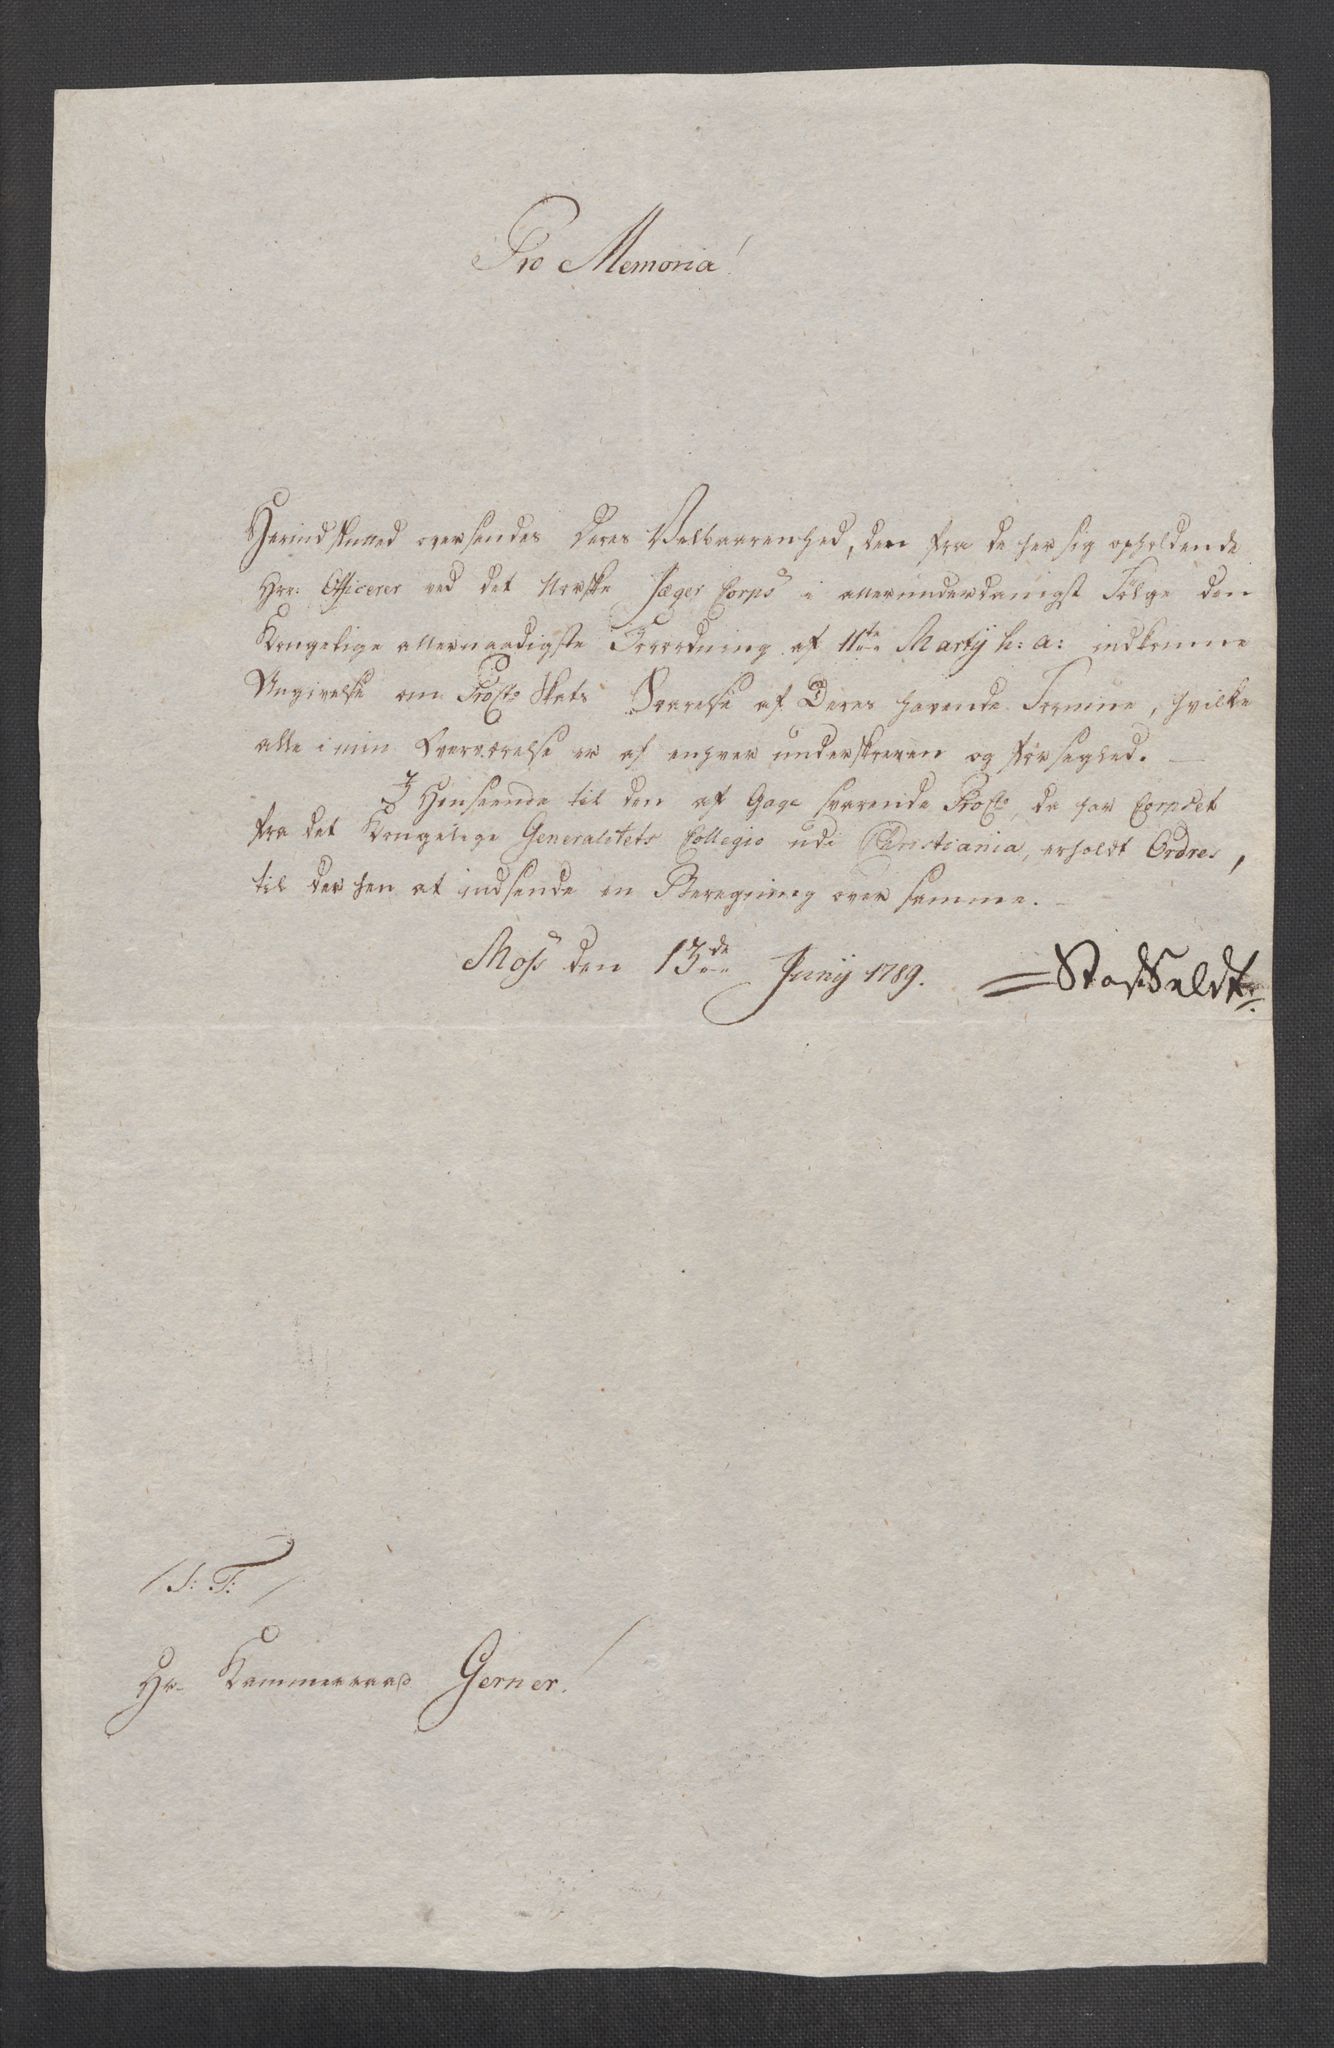 Pro Memoria!
Herindslutted oversendes Deres Velbaarenhed, den fra de her sig opholdende
Hrr: Officerer ved det Norske Jæger Corps i allerunderdanigst Følge den
Kongelige allernaadigste Forordning af 11te Martij h: a: indkomne
Angivelse om Procto Skats Svarelse af Deres havende Formue, hvilke
alle i min Overværelse er af enhver underskreven og forsegled. —
I Henseende til den af Gage svarende Procto, da har Corpset
fra det Kongelige Generalitets Collegio udi Christiania, erholdt Ordres,
til der hen at indsende en Beregning over samme. —
Moss den 13de Junij 1789.
/S: T:/
Hr. Kammerraad Gerner!